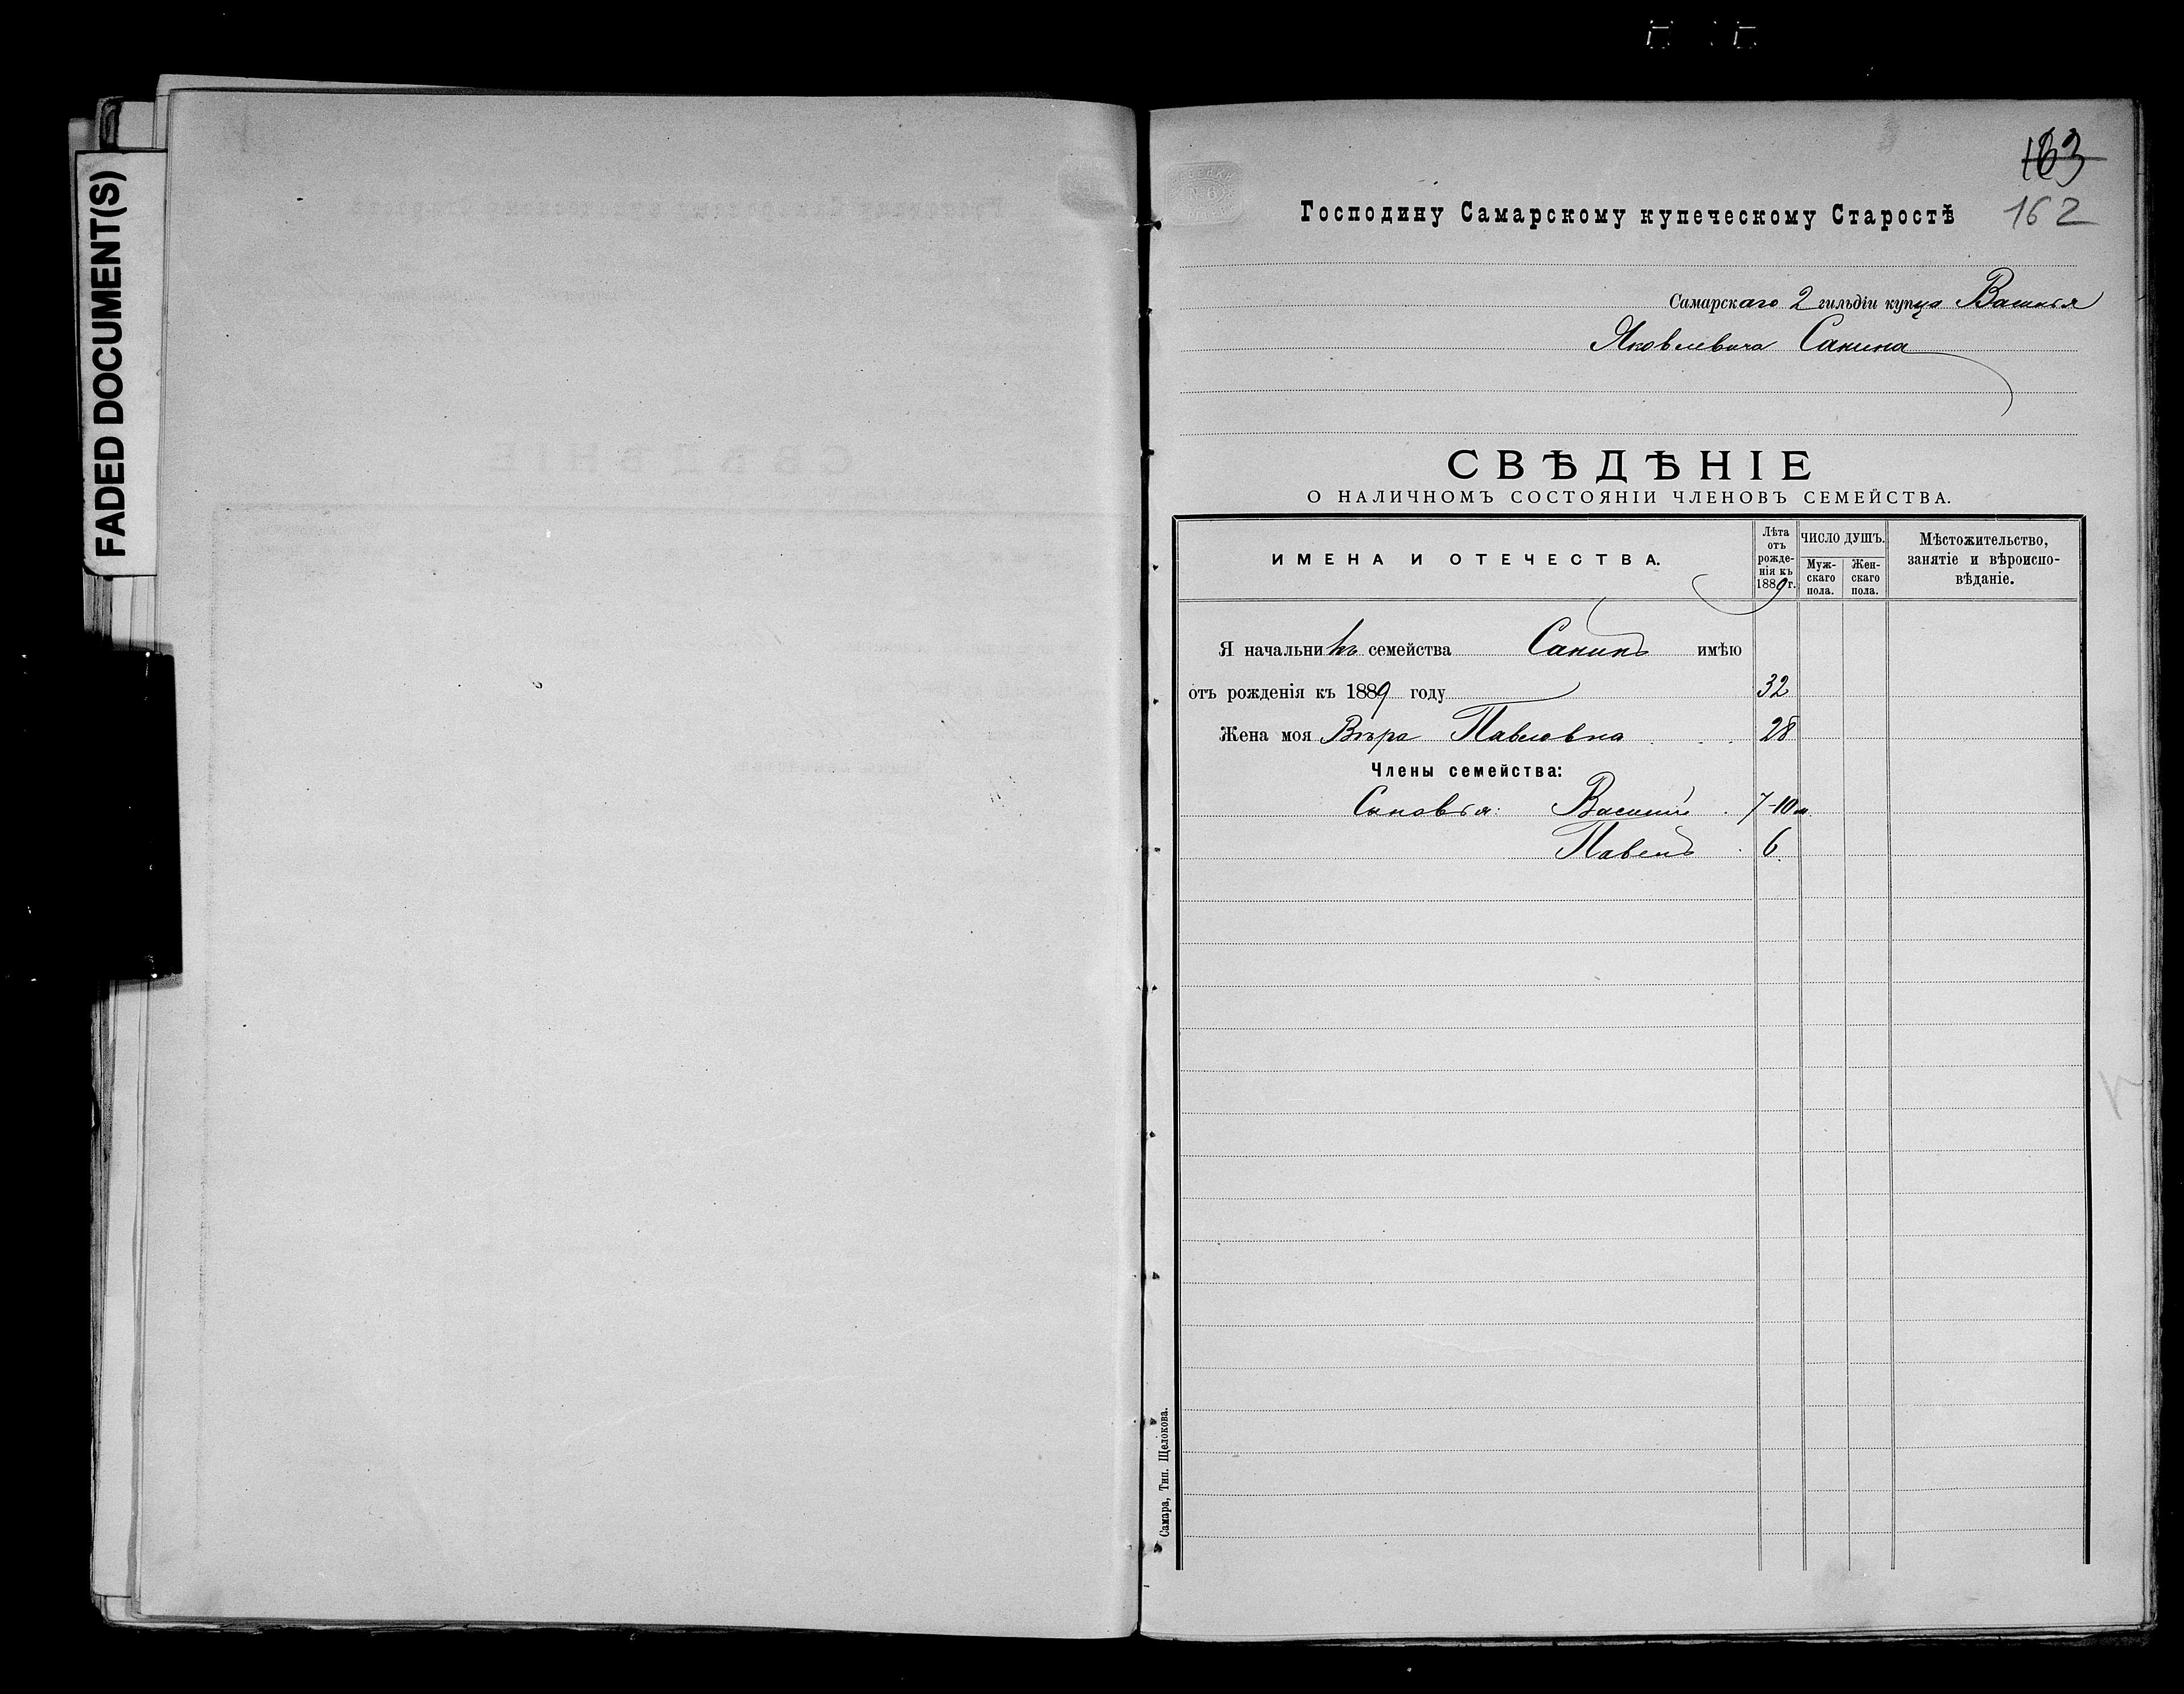 FADED DOCUMENT(S)
163
162
Господину Самарскому купеческому Старостѣ
Самарскаго 2 гильдіи купца Василья
Яковлевича Санина
СВѢДѢНІЕ
О НАЛИЧНОМЪ СОСТОЯНІИ ЧЛЕНОВЪ СЕМЕЙСТВА.
ИМЕНА И ОТЕЧЕСТВА.
Лѣта
отъ
рожде-
нія къ
1889 г.
ЧИСЛО ДУШЪ.
Муж-
скаго
пола.
Жен-
скаго
пола.
Мѣстожительство,
занятіе и вѣроиспо-
вѣданіе.
Я начальникъ семейства Санинъ имѣю
отъ рожденія къ 1889 году 32
Жена моя Вѣра Павловна 28
Члены семейства:
Сыновья: Василій 7-10 м.
Павелъ 6
Самара, Тип. Щелокова.